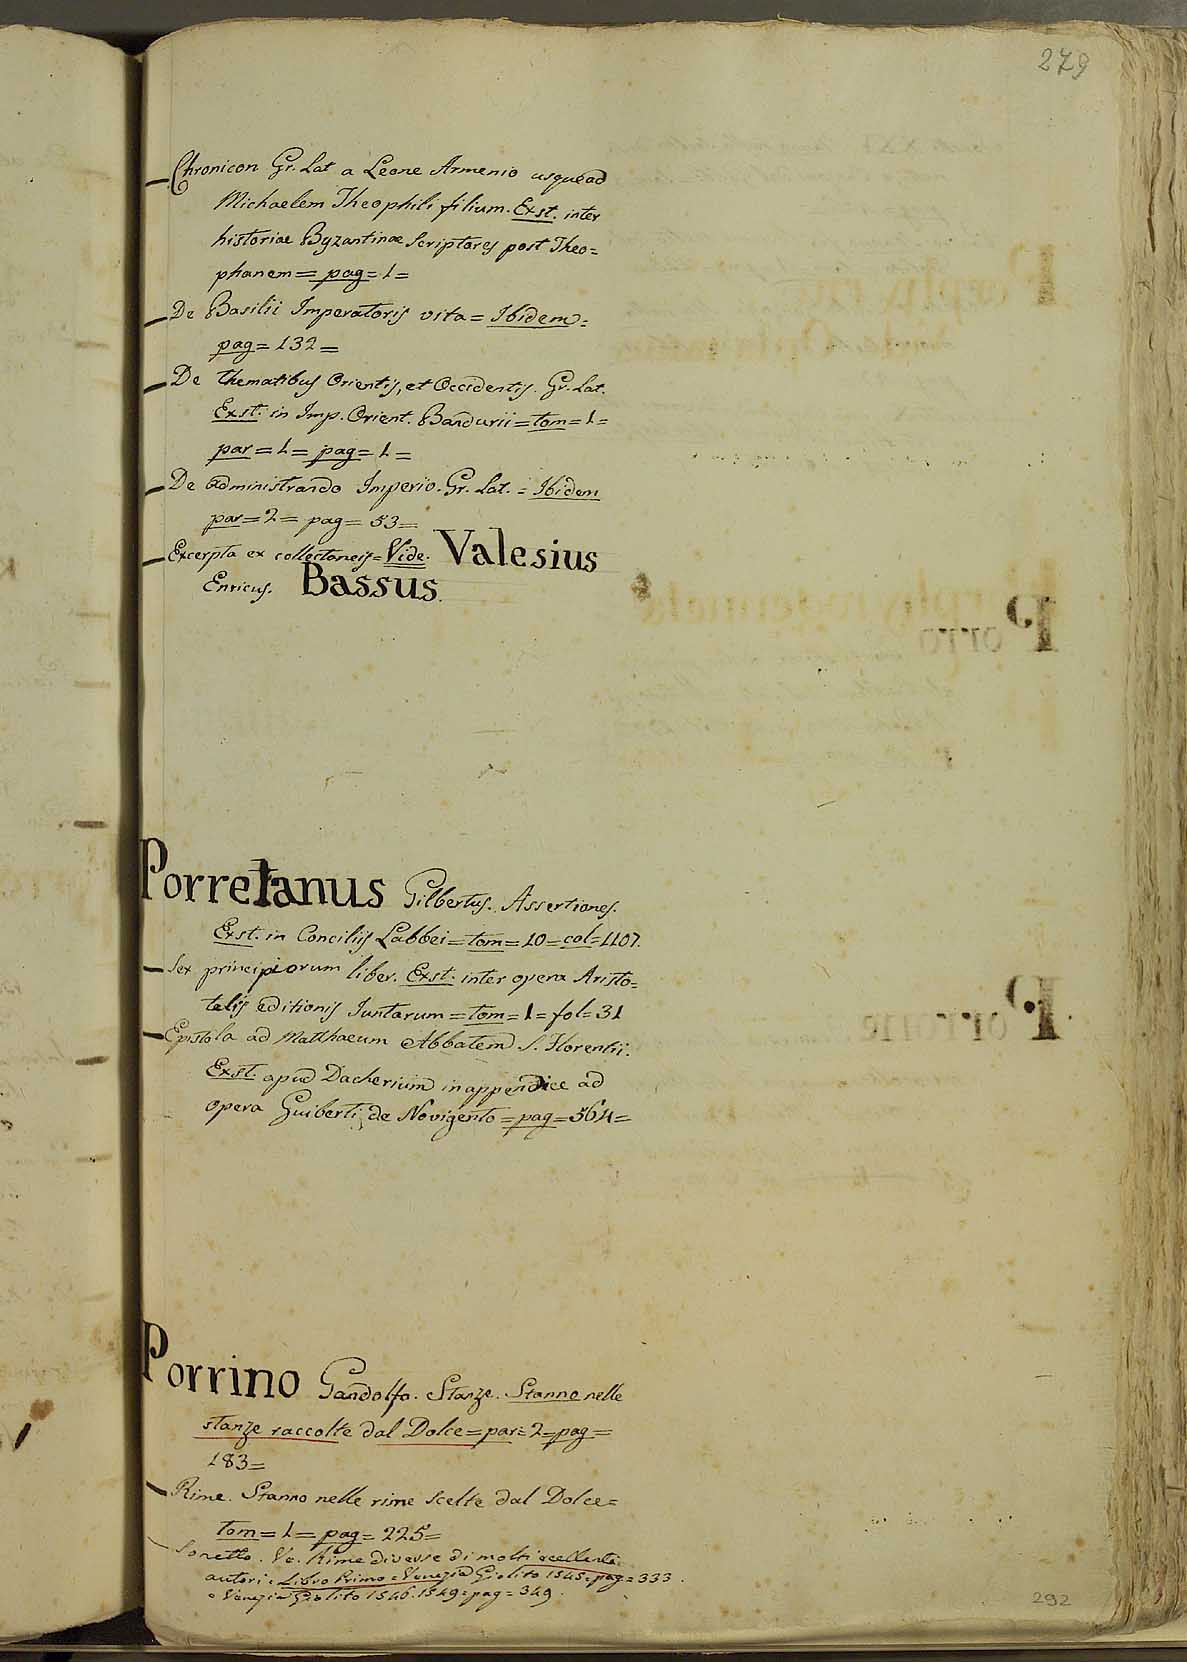 279
Chronicon Gr. Lat a Leone Armenio usque ad
Michaelem Theophili filium. Exst. inter
historiae Byzantinae Scriptores post Theo=
phanem= pag= 1=
De Basilii Imperatoris vita= Ibidem=
pag= 132=
De thematibus Orientis, et Occidentis. Gr. Lat.
Exst. in Imp. Orient. Bandurii= tom= 1=
par= 1= pag= 1=
De administrando Imperio. Gr. Lat. = Ibidem
par= 2= pag= 53=
Excerpta ex collectaneis= Vide. Valesius
Enricus. Bassus.
Porretanus Gilbertus. Assertiones.
Exst. in Conciliis Labbei= tom= 10= col= 1107.
Sex principiorum liber. Exst. inter opera Aristo=
telis editionis Juntarum= tom= 1= fol= 31
Epistola ad Matthaeum Abbatem S. Florentii.
Exst. apud Dacherium in appendice ad
opera Guiberti de Novigento= pag= 564=
Porrino Gandolfo. Stanze. Stanno nelle
stanze raccolte dal Dolce= par= 2= pag=
183=
Rime. Stanno nelle rime scelte dal Dolce=
tom= 1= pag= 225=
Sonetto. Va. Rime diverse di molti eccellenti
autori= Libro Primo= Venezia Giolito 1545= pag= 333.
e Venezia Giolito 1546. 1549= pag= 349.
292